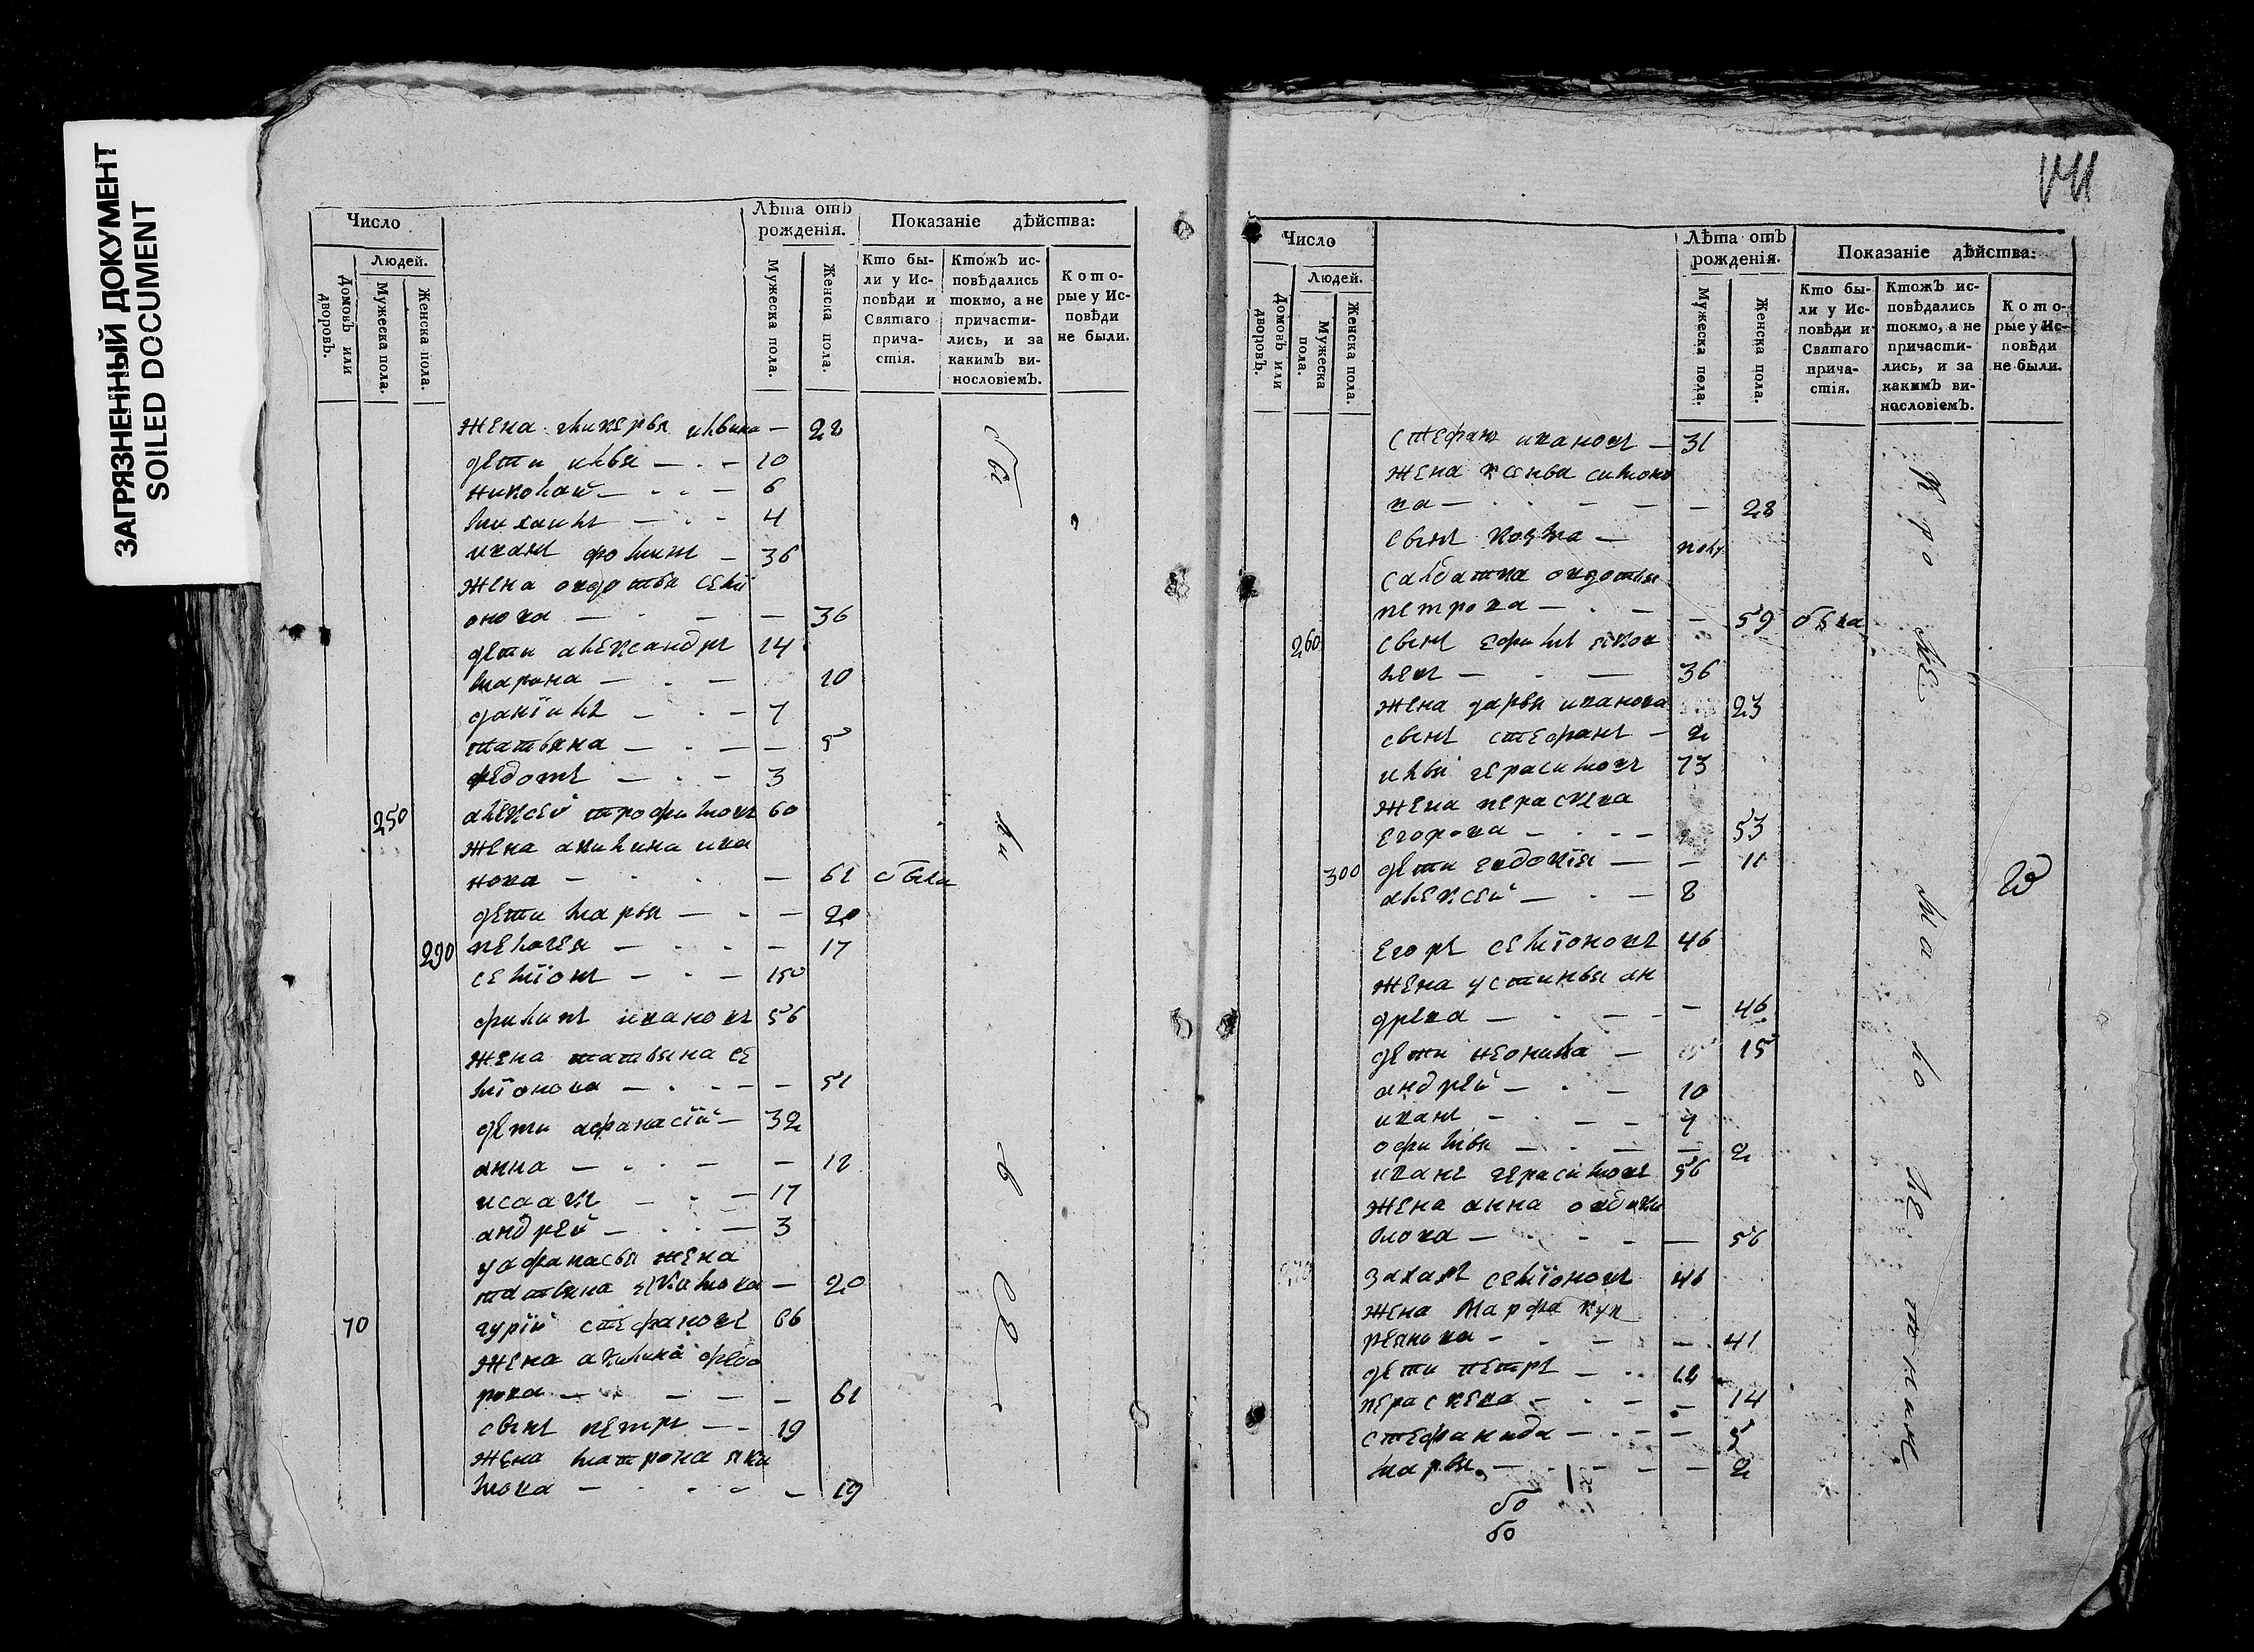 ЗАГРЯЗНЕННЫЙ ДОКУМЕНТ
SOILED DOCUMENT
Число
Людей.
Домовъ или дворовъ.
Мужеска пола.
Женска пола.
Лѣта отъ рожденія.
Мужеска пола.
Женска пола.
Показаніе дѣйства:
Кто были у Исповѣди и Святаго причастія.
Ктожъ исповѣдались токмо, а не причастились, и за какимъ винословіемъ.
Которые у Исповѣди не были.
жена гликерья ильина — 28
дети илья — 10
николай — 6
михаилъ — 4
иванъ фоминъ — 36
жена овдотья семі
онова — 36
дети александръ 14
марона — 10
даніилъ — 7
татьяна — 5
федотъ — 3
250 алексей трофимовъ 60
жена акилина ива
нова — 61 обѣи
дети марья — 20
290 пелагея — 17
семіонъ — 150
филипъ ивановъ 56
жена татьяна се
міонова — 51
дети афанасій — 32
анна — 12
исаакъ — 17
андрей — 3
у афанасья жена
татьяна якимова — 20
70 гурій стефановъ 66
жена акилина федо
рова — 61
сынъ петръ — 19
жена матрона яки
мова — 19
Число
Людей.
Домовъ или дворовъ.
Мужеска пола.
Женска пола.
Лѣта отъ рожденія.
Мужеска пола.
Женска пола.
Показаніе дѣйства:
Кто были у Исповѣди и Святаго причастія.
Ктожъ исповѣдались токмо, а не причастились, и за какимъ винословіемъ.
Которые у Исповѣди не были.
стефанъ ивановъ — 31
жена ксенья симоно
ва — 28
сынъ козма — полу
салдатка овдотья
петрова — 59
260 сынъ ефимъ яков
левъ — 36
жена дарья иванова 23
сынъ стефанъ — 2
илья герасимовъ 73
жена пераскева
егорова — 53
300 дети евдокія — 11
алексей — 8
егоръ семіоновъ 46
жена устинья ан
дреева — 46
дети неонила — 15
андрей — 10
иванъ — 7
офимья — 2
иванъ герасимовъ 56
жена анна
мова — 56
захаръ семіоновъ 41
жена Марфа куп
реянова — 41
дети петръ — 12
пераскева — 14
стефанида — 5
марья — 2
бо
бо